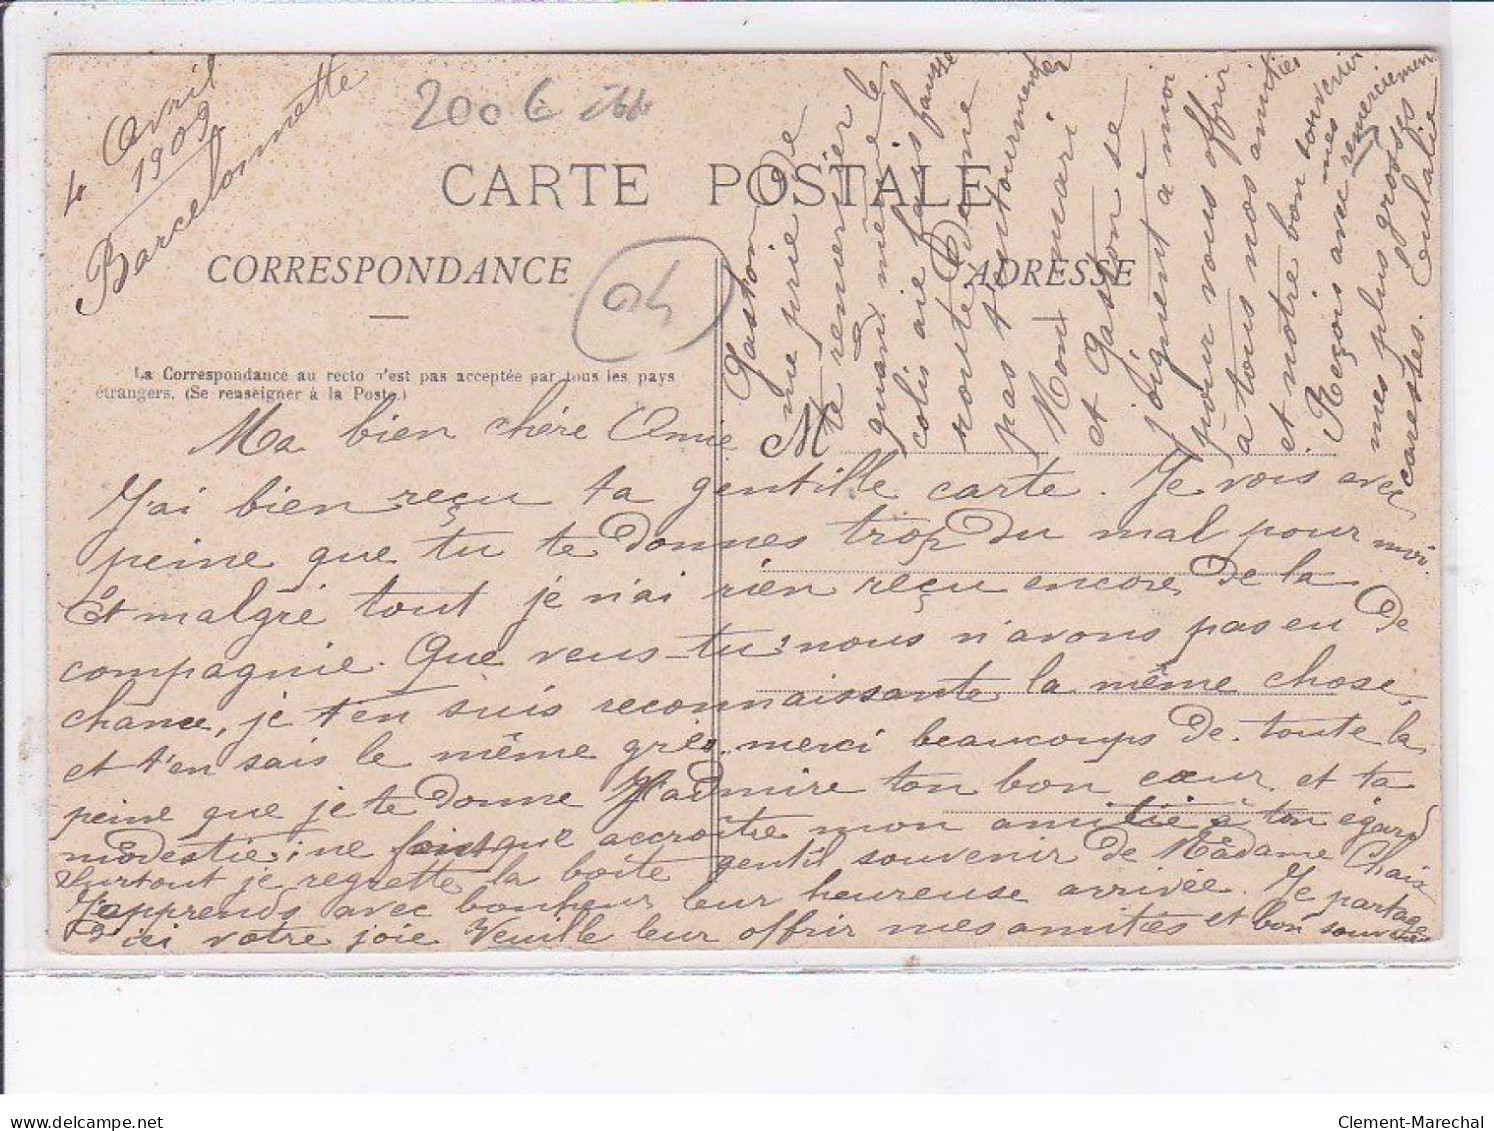 4 Avril
1909
Barcelonnette
200 €
CARTE POSTALE
CORRESPONDANCE
ADRESSE
04
La Correspondance au recto n'est pas acceptée par tous les pays
étrangers. (Se renseigner à la Poste.)
M
Ma bien chère Amie
J'ai bien reçu ta gentille carte. Je vois avec
peine que tu te donnes trop du mal pour moi.
Et malgré tout je n'ai rien reçu encore de la
compagnie. Que veux-tu nous n'avons pas eu de
chance, je t'en suis reconnaissante la même chose,
et t'en sais le même gré. merci beaucoups de toute la
peine que je te donne J'admire ton bon cœur et ta
modestie; ne font que accroître mon amitié à ton égard
Surtout je regrette la boîte gentil souvenir de Madame Chaix
J'apprends avec bonheur leur heureuse arrivée. Je partage
d'ici votre joie Veuille leur offrir mes amitiés et bon souvenir
Gaston de
me prie de
te remercier
quand même le
colis aie fais fausse
route Donne
pas t'en tourmenter
Mon mari
et Gaston se
joignent à moi
pour vous offrir
à tous nos amitiés
et notre bon souvenir
Reçois avec mes remerciements
mes plus grosses
caresses. Eulalie
delcampe.net
Clement-Marechal